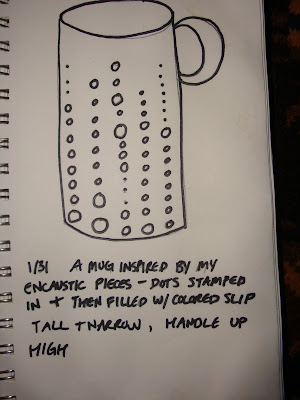 1/31 A MUG INSPIRED BY MY
ENCAUSTIC PIECES - DOTS STAMPED
IN + THEN FILLED W/ COLORED SLIP
TALL + NARROW, HANDLE UP
HIGH